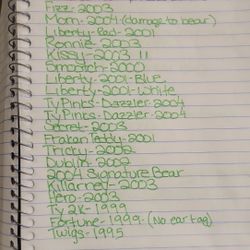 Fizz-2003
Mom-2004-(damage to bear)
Liberty-Red-2001
Ronnie-2003
Kissy-2003 11
Smooch-2000
Liberty-2001-Blue
Liberty-2001-White
TyPinks-Dazzler-2004
TyPinks-Dazzler-2004
Secret-2003
Fraken Teddy-2001
Tricky-2002
Dublin-2002
2004 Signature Bear
Killarney-2003
Hero-2002
Ty 2K-1999
Fortune-1999-(No ear tag)
Twigs-1995